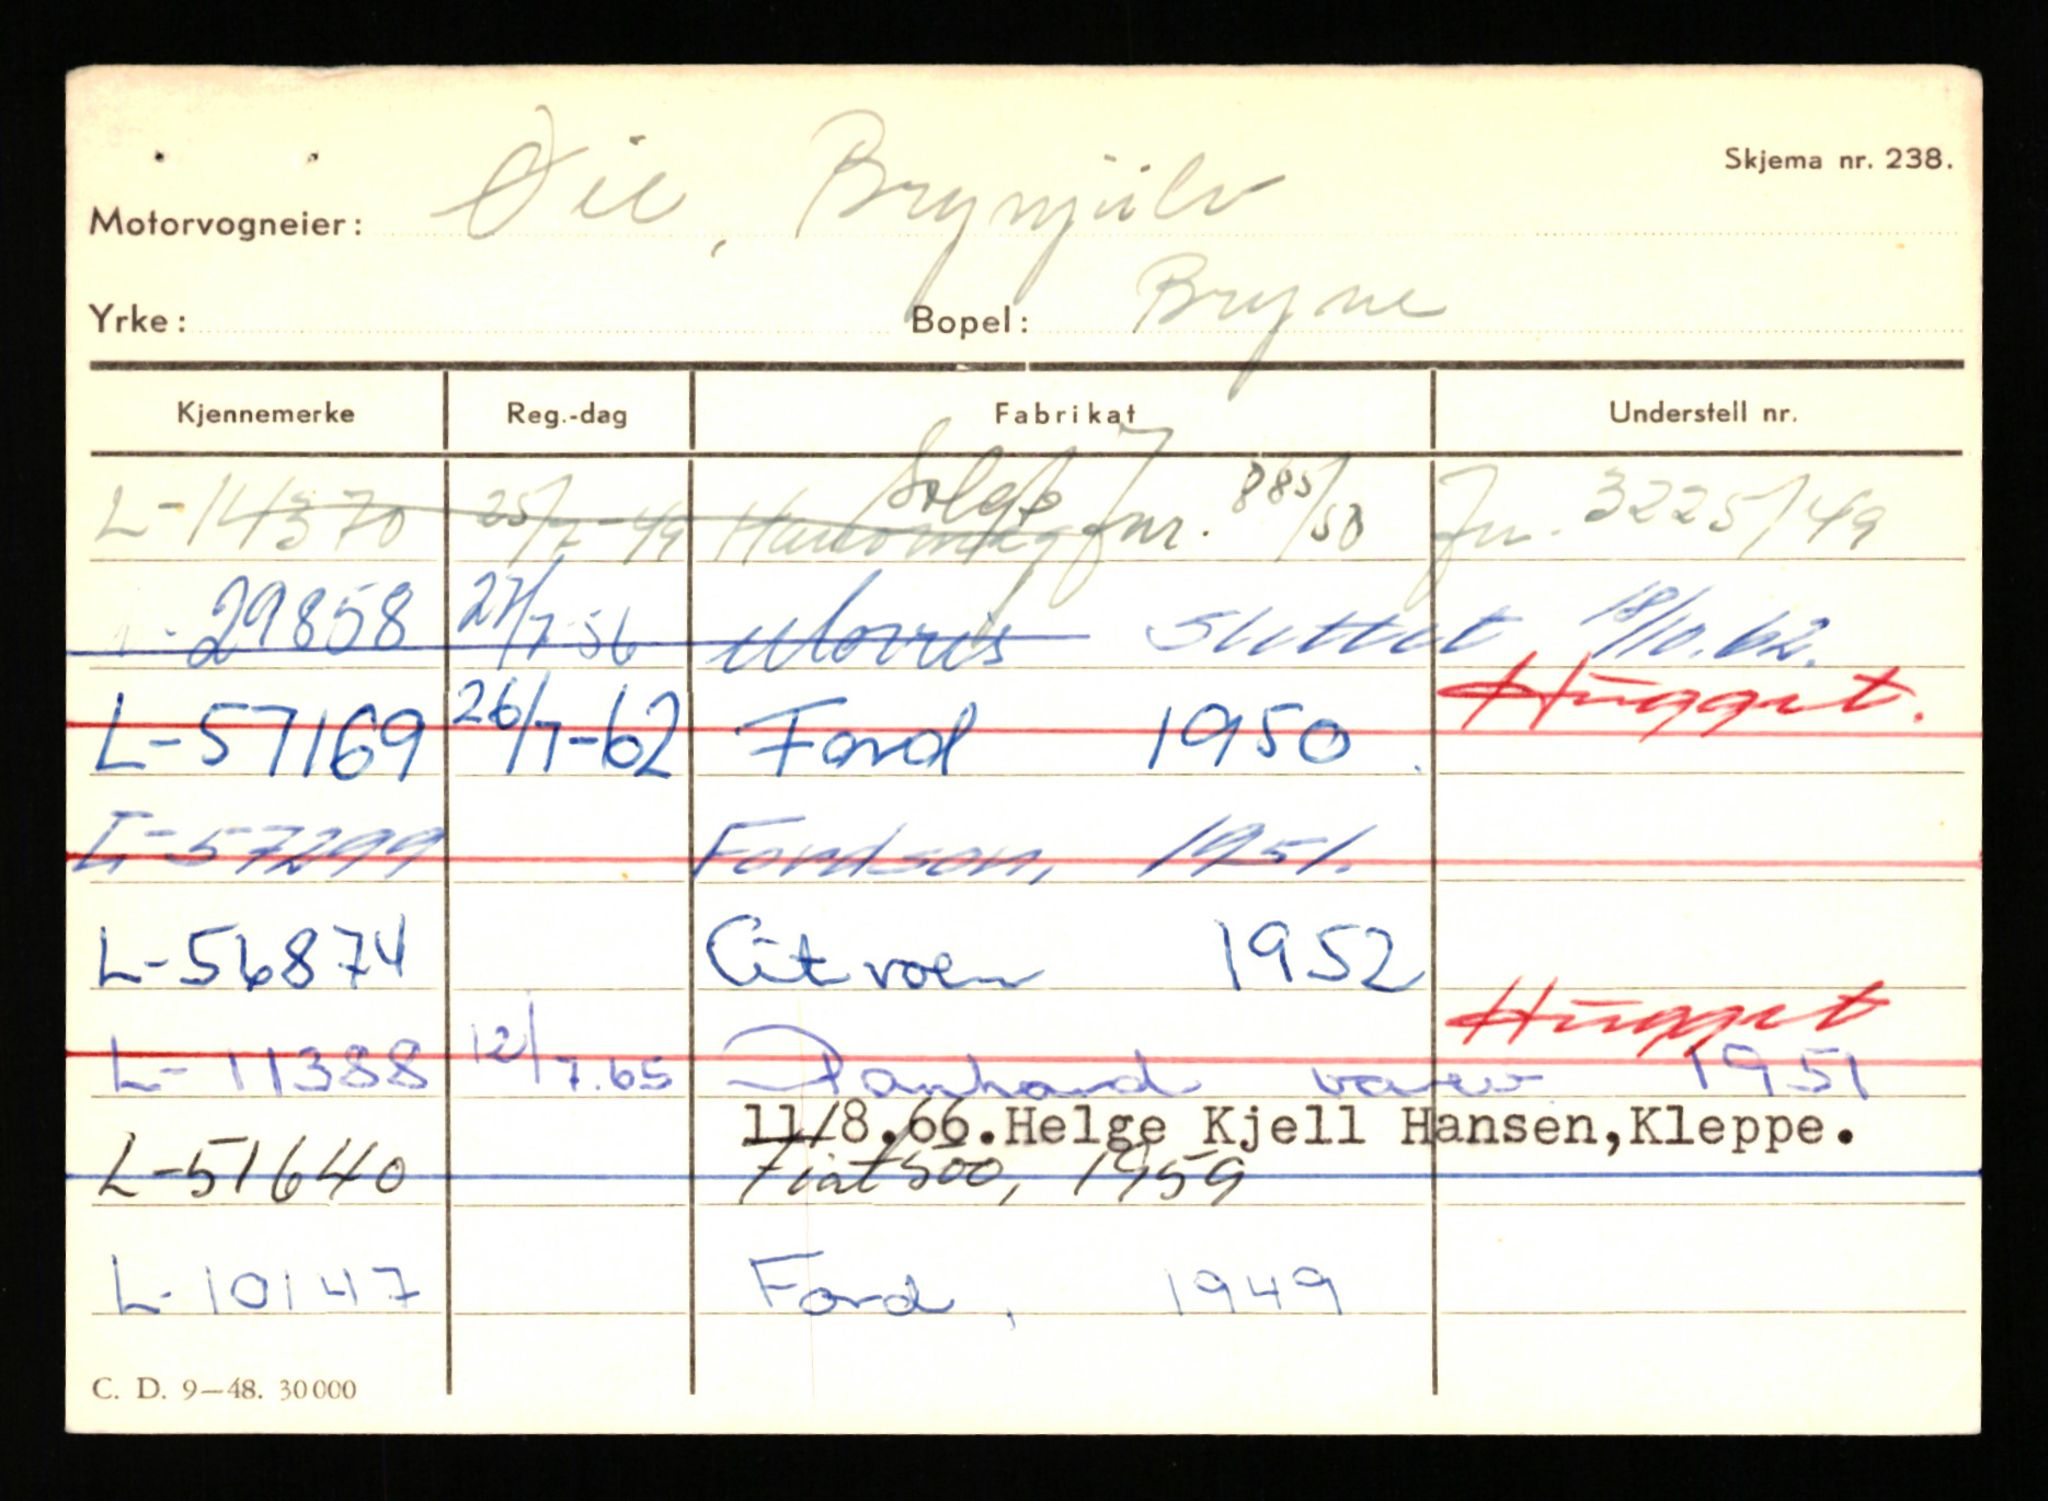 Skjema nr. 238.
Motorvogneier: Øie, Brynjulv
Yrke: Bopel: Bryne
Kjennemerke Reg.-dag Fabrikat Understell nr.
L-14370 25/7-49 Hanomag Solgt Jnr. 885/50 Jn. 3225/49
29858 27/7 56 Morris Slettet 18/10.62.
L-57169 26/7-62 Ford 1950 Hugget.
L-57299 Fordson, 1951.
L-56874 Citroen 1952
L-11388 12/7.65 Panhard varev. 1951 Hugget
11/8.66. Helge Kjell Hansen, Kleppe.
L-51640 Fiat 500, 1959
L-10147 Ford, 1949
C. D. 9—48. 30000